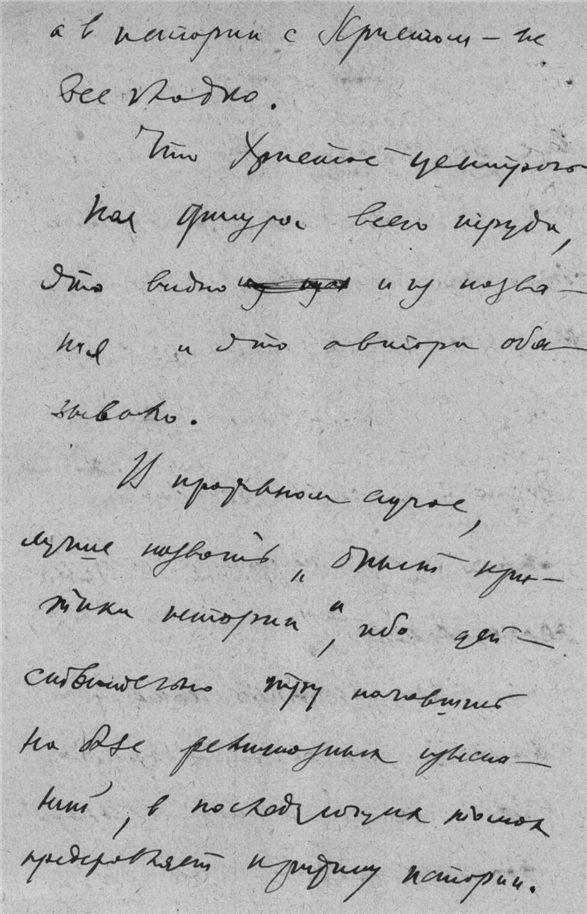 а в истории с Христом – не
все ладно.
Что Христос централь-
ная фигура всего труда,
это видно и из назва-
ния и это автора обя-
зывало.
В противном случае,
лучше назвать „опыт кри-
тики истории“, ибо дей-
ствительно труд начавшись
на базе религиозных изыска-
ний, в последующих томах
представляет критику истории.